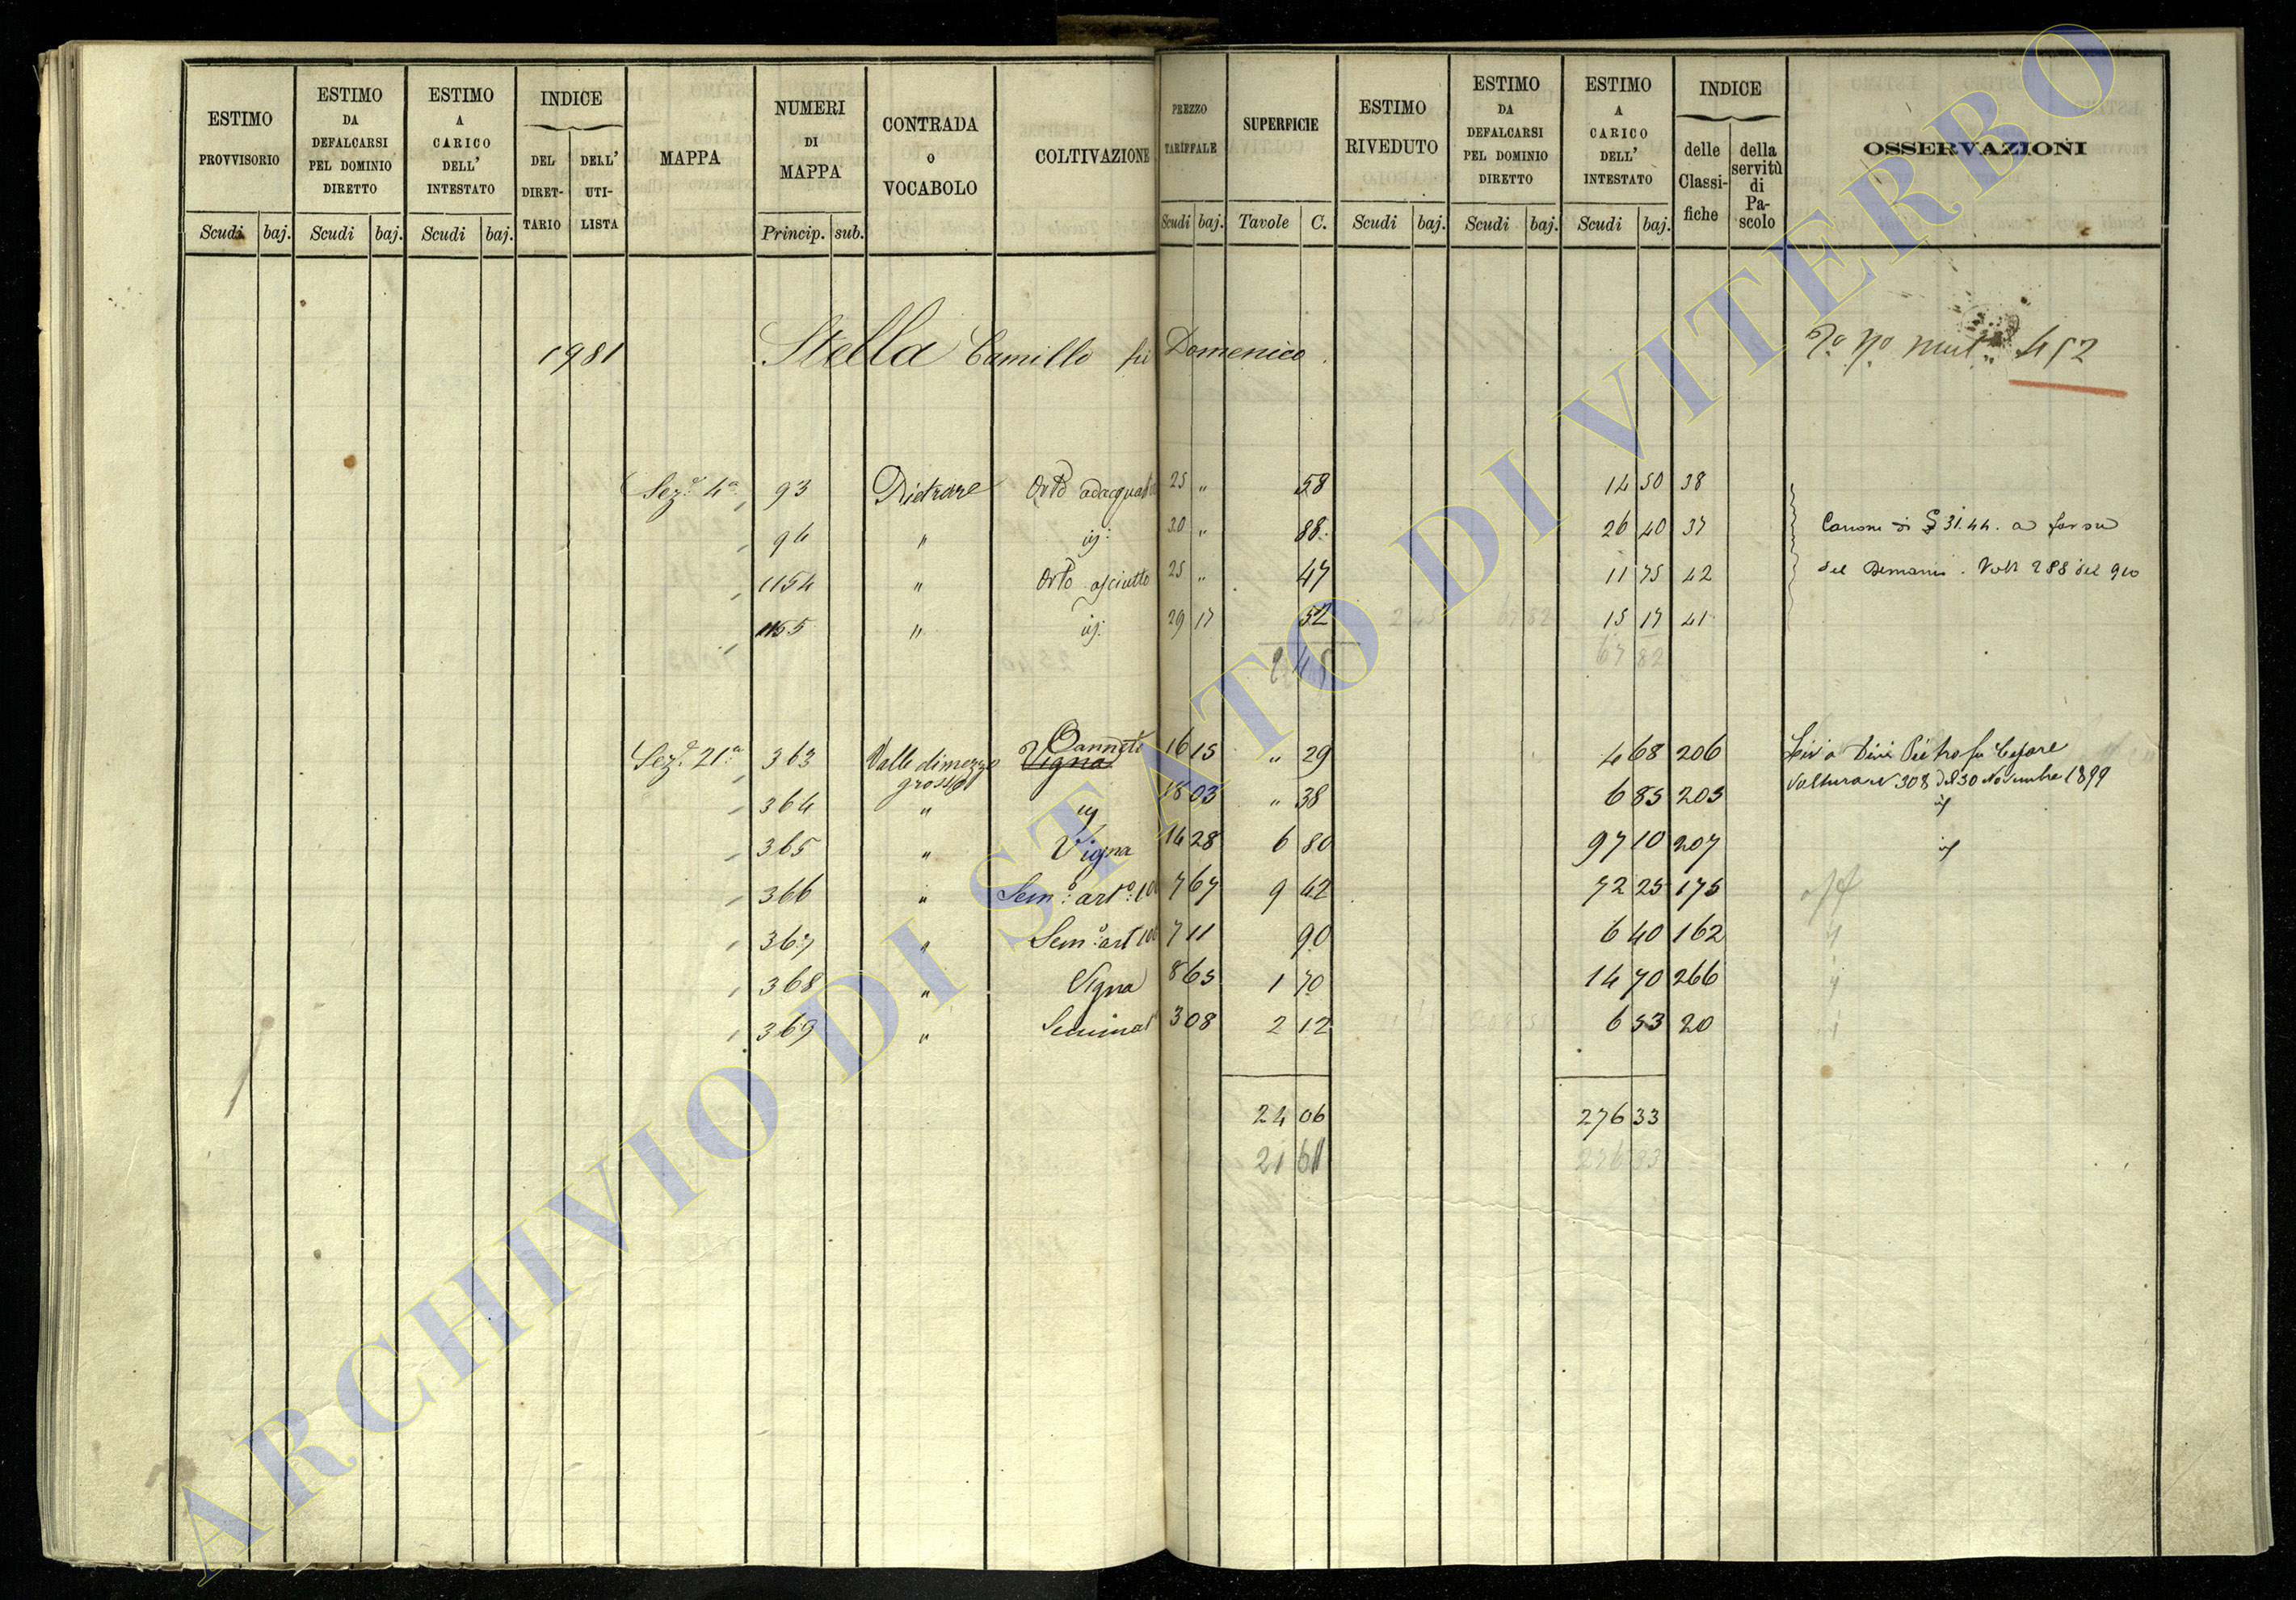 ESTIMO PROVVISORIO
ESTIMO DA DEFALCARSI PEL DOMINIO DIRETTO
ESTIMO A CARICO DELL' INTESTATO
INDICE
DEL DIRET-TARIO
DELL' UTI-LISTA
MAPPA
NUMERI DI MAPPA
CONTRADA O VOCABOLO
COLTIVAZIONE
PREZZO TARIFFALE
SUPERFICIE
ESTIMO RIVEDUTO
ESTIMO DA DEFALCARSI PEL DOMINIO DIRETTO
ESTIMO A CARICO DELL' INTESTATO
INDICE
delle Classi-fiche
della servitù di Pa-scolo
OSSERVAZIONI
Scudi baj. Scudi baj. Scudi baj. Princip. sub. Scudi baj. Tavole C. Scudi baj. Scudi baj. Scudi baj.
1981 Stella Camillo fu Domenico 452
Sez.e 4a 93 Orto 25 " 58 14 50 38
94 " id: 30 " 88 26 40 37 a favore
1154 " Orto asciutto 25 " 47 11 75 42 del Demanio. Volt 288 del 910
1155 " id: 29 17 52 15 17 41
2 45 67 82
Sez.e 21a 363 Valle di mezzo grosso Canneto Vigna 16 15 " 29 4 68 206 Pietro fu Cesare
Volturare 308 del 30 Novembre 1899
364 " id 18 03 " 38 6 85 205 id
365 " Vigna 14 28 6 80 97 10 207 id
366 " Sem.o art.o 7 67 9 42 72 25 175
367 " Sem.o art 7 11 90 6 40 162
368 " Vigna 8 65 1 70 14 70 266
369 " Seminat 3 08 2 12 6 53 20
24 06 276 33
21 61
ARCHIVIO DI STATO DI VITERBO